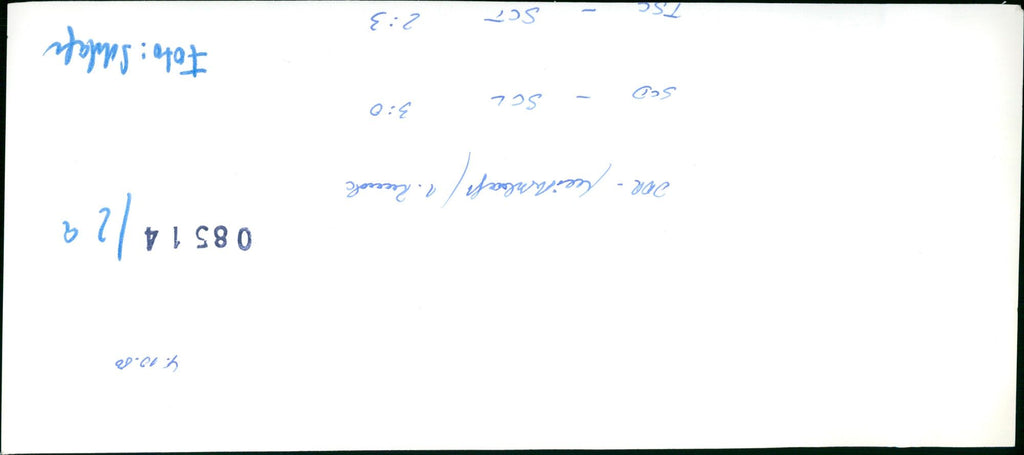 4.10.80
08514 /2a
DDR - Meisterschaft / 1. Runde
SCD - SCL 3:0
Foto:
TSC - SCT 2:3